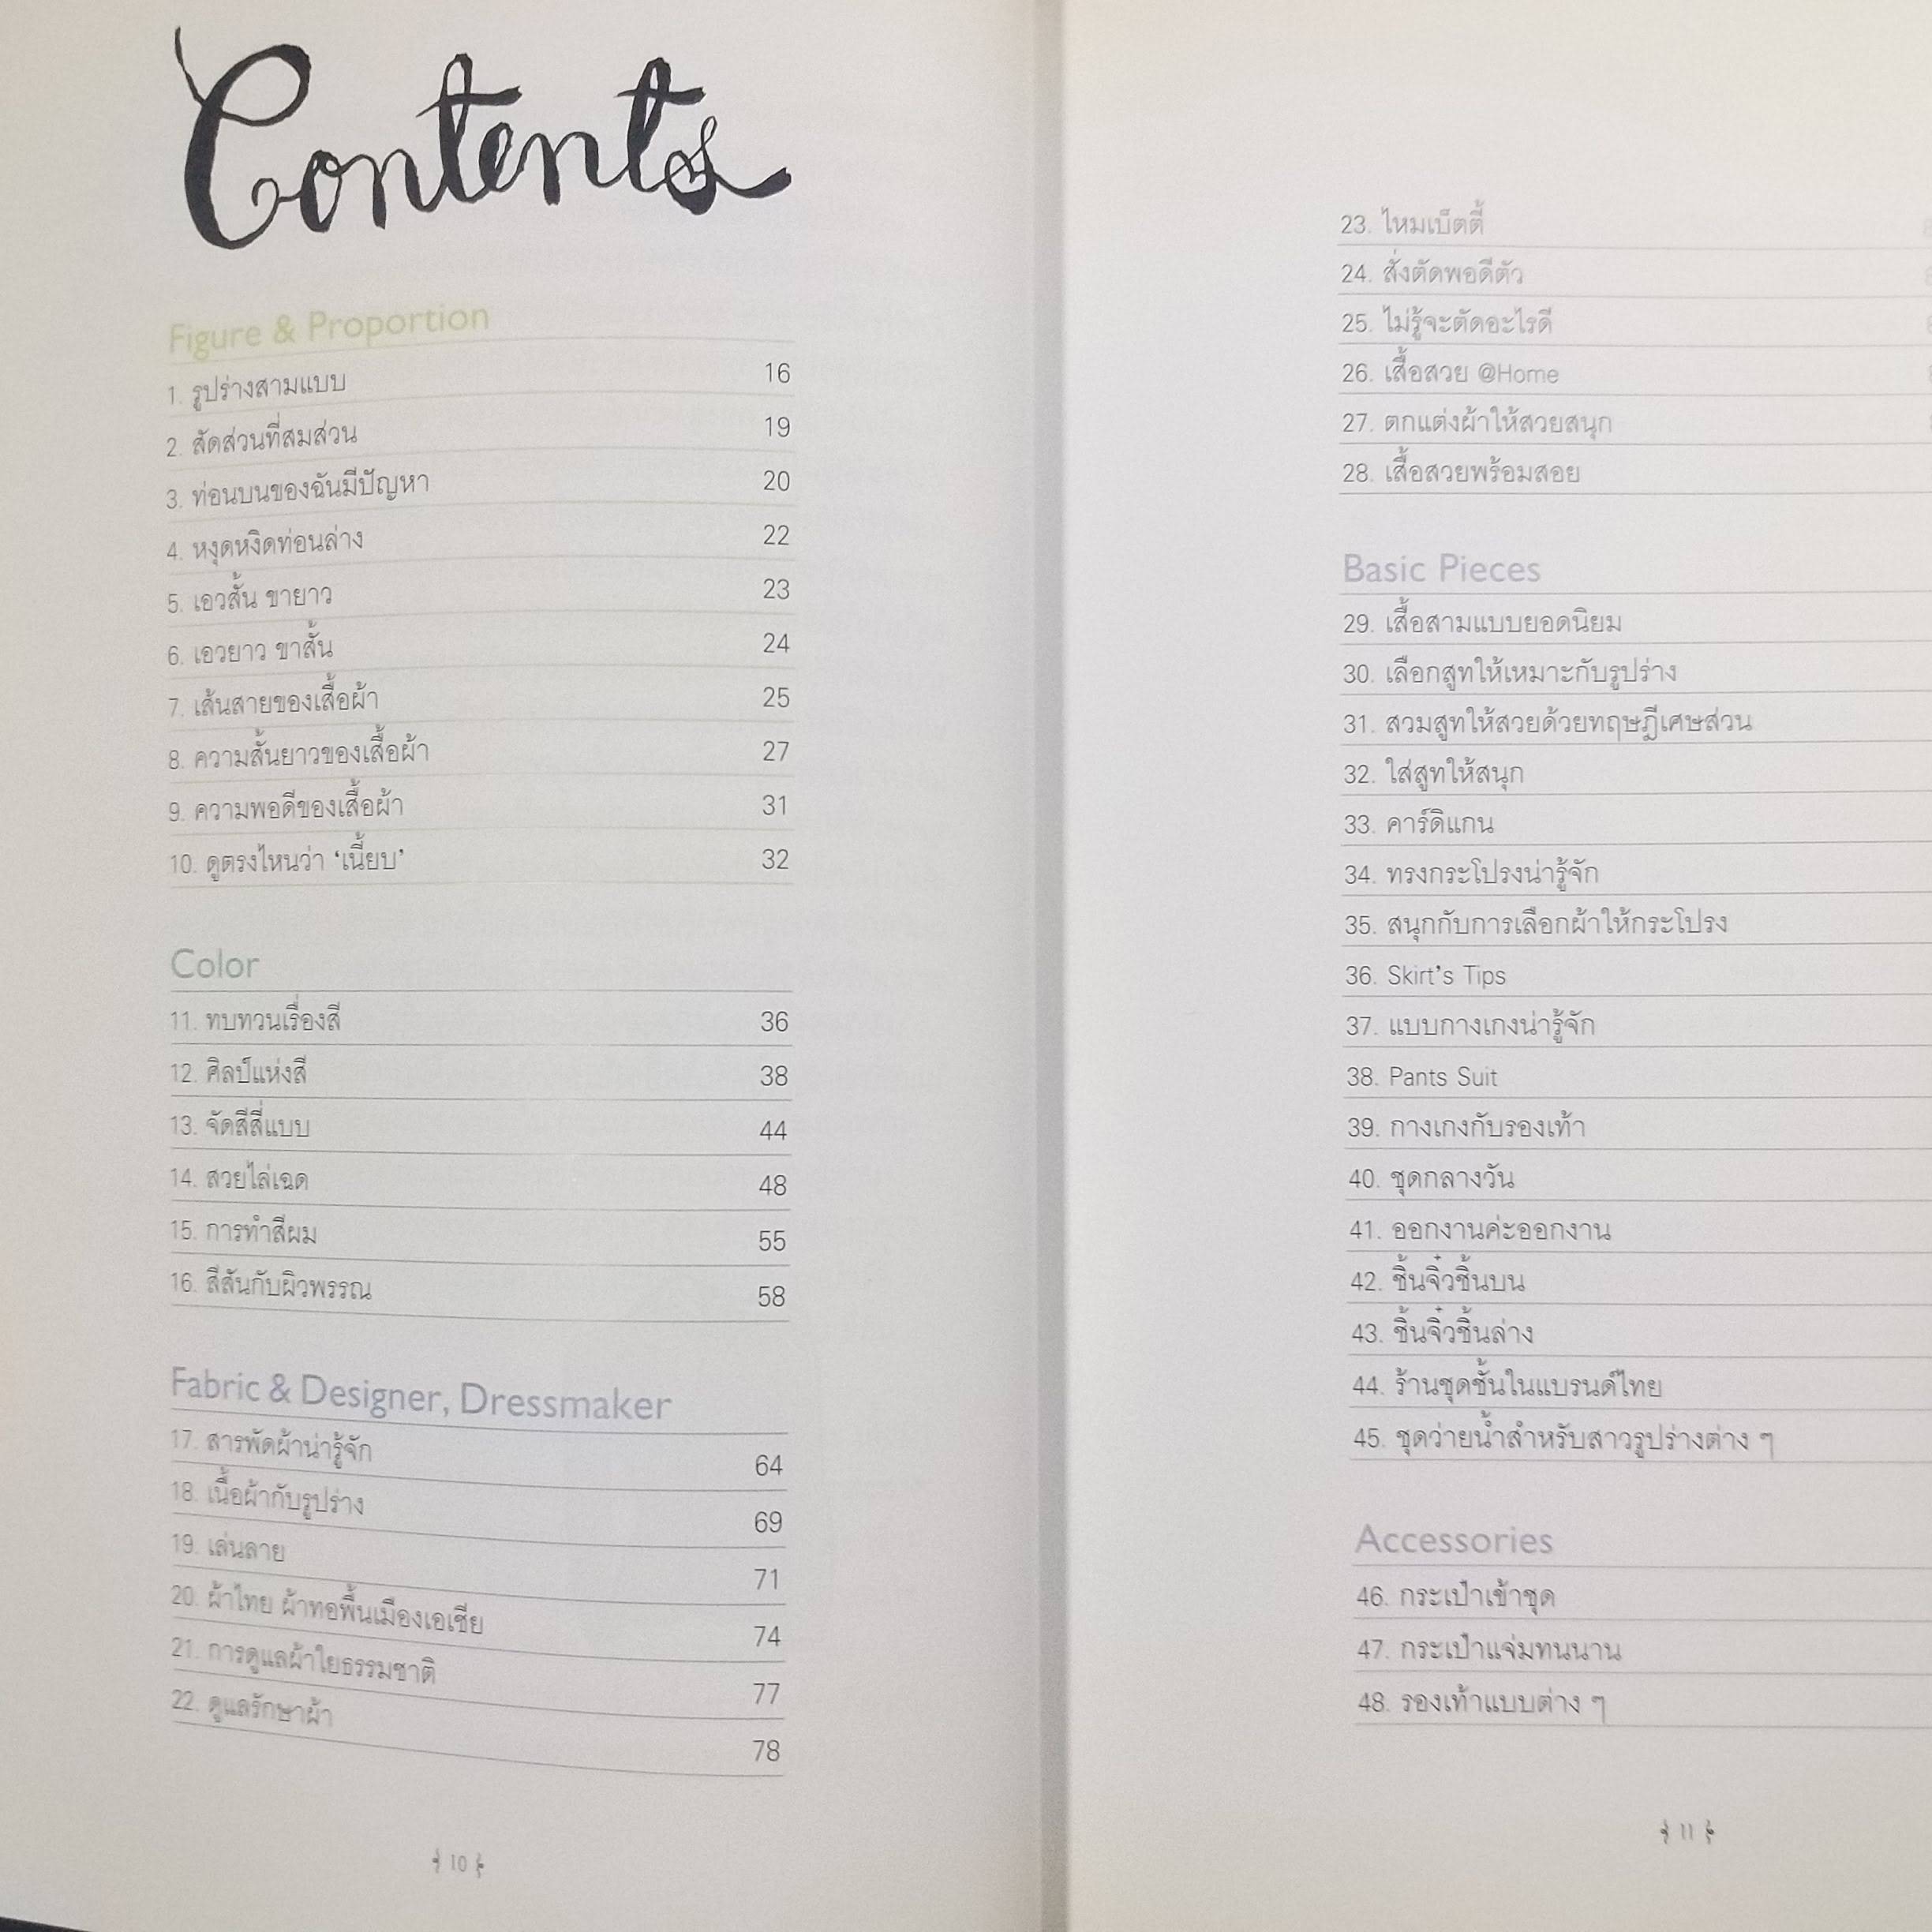 Contents
Figure & Proportion
1. รูปร่างสามแบบ 16
2. สัดส่วนที่สมส่วน 19
3. ท่อนบนของฉันมีปัญหา 20
4. หงุดหงิดท่อนล่าง 22
5. เอวสั้น ขายาว 23
6. เอวยาว ขาสั้น 24
7. เส้นสายของเสื้อผ้า 25
8. ความสั้นยาวของเสื้อผ้า 27
9. ความพอดีของเสื้อผ้า 31
10. ดูตรงไหนว่า ‘เนี้ยบ’ 32
Color
11. ทบทวนเรื่องสี 36
12. ศิลป์แห่งสี 38
13. จัดสีสี่แบบ 44
14. สวยไล่เฉด 48
15. การทำสีผม 55
16. สีสันกับผิวพรรณ 58
Fabric & Designer, Dressmaker
17. สารพัดผ้าน่ารู้จัก 64
18. เนื้อผ้ากับรูปร่าง 69
19. เล่นลาย 71
20. ผ้าไทย ผ้าทอพื้นเมืองเอเชีย 74
21. การดูแลผ้าใยธรรมชาติ 77
22. ดูแลรักษาผ้า 78
10
23. ไหมเบ็ตตี้
24. สั่งตัดพอดีตัว
25. ไม่รู้จะตัดอะไรดี
26. เสื้อสวย @Home
27. ตกแต่งผ้าให้สวยสนุก
28. เสื้อสวยพร้อมสอย
Basic Pieces
29. เสื้อสามแบบยอดนิยม
30. เลือกสูทให้เหมาะกับรูปร่าง
31. สวมสูทให้สวยด้วยทฤษฎีเศษส่วน
32. ใส่สูทให้สนุก
33. คาร์ดิแกน
34. ทรงกระโปรงน่ารู้จัก
35. สนุกกับการเลือกผ้าให้กระโปรง
36. Skirt’s Tips
37. แบบกางเกงน่ารู้จัก
38. Pants Suit
39. กางเกงกับรองเท้า
40. ชุดกลางวัน
41. ออกงานค่ะออกงาน
42. ชิ้นจิ๋วชิ้นบน
43. ชิ้นจิ๋วชิ้นล่าง
44. ร้านชุดชั้นในแบรนด์ไทย
45. ชุดว่ายน้ำสำหรับสาวรูปร่างต่าง ๆ
Accessories
46. กระเป๋าเข้าชุด
47. กระเป๋าแจ่มทนนาน
48. รองเท้าแบบต่าง ๆ
11